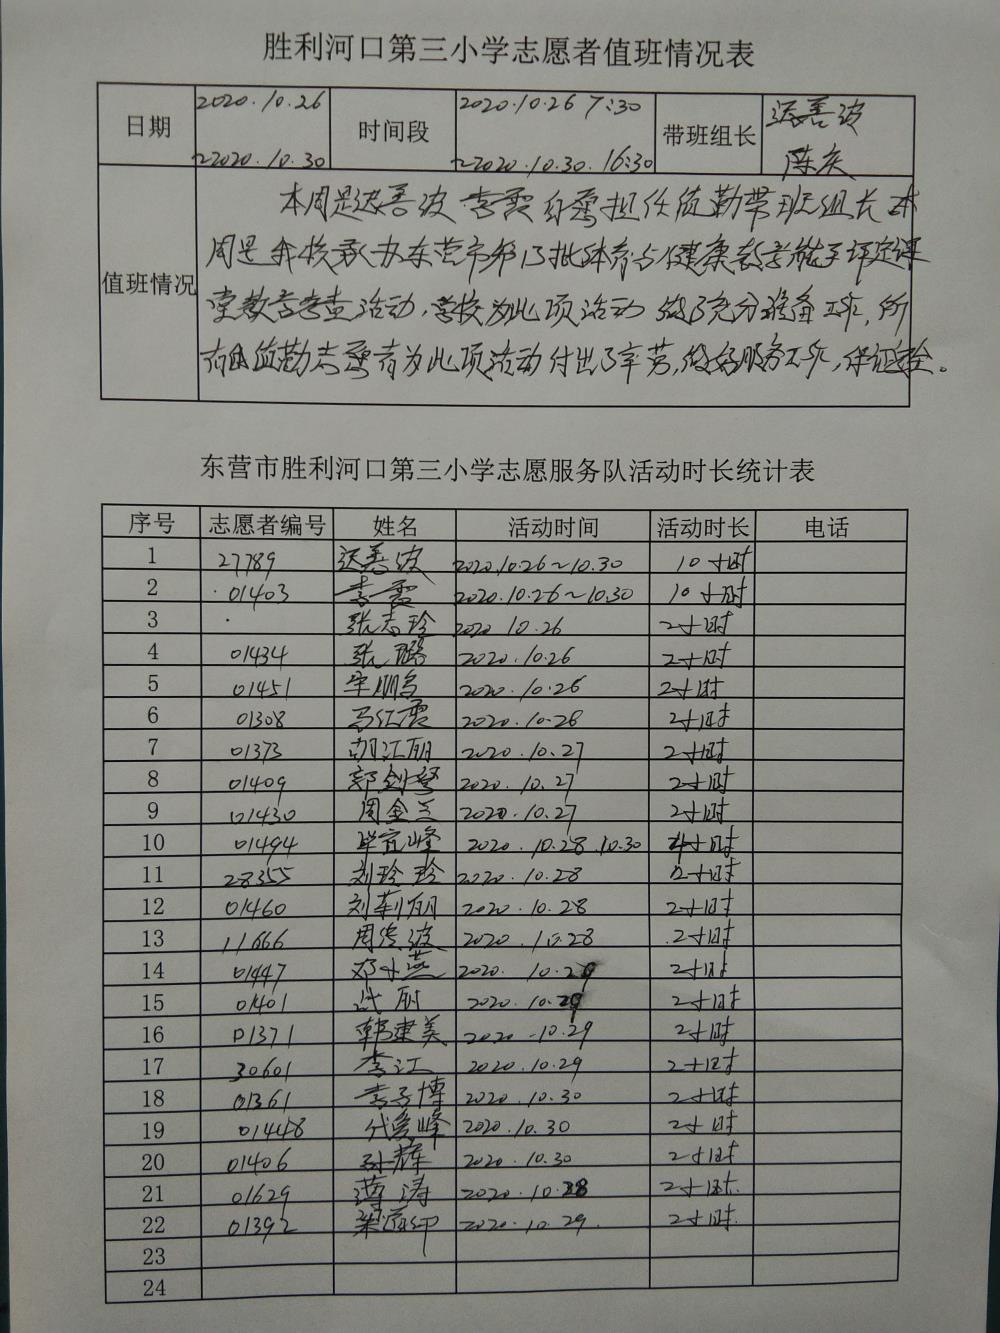 胜利河口第三小学志愿者值班情况表
日期 2020.10.26 ~2020.10.30 时间段 2020.10.26 7:30 ~2020.10.30. 16:30 带班组长 迟善波
值班情况 本周是迟善波 李霞 担任值勤带班组长 本
周是我校承办东营市第13批体育与健康教学能手评定课
堂教学考查活动，学校为此项活动做了充分准备工作，所
有值勤志愿者为此项活动付出了辛劳，做好服务工作，保证
东营市胜利河口第三小学志愿服务队活动时长统计表
序号 志愿者编号 姓名 活动时间 活动时长 电话
1 27789 迟善波 2020.10.26~10.30 10小时
2 01403 李霞 2020.10.26~10.30 10小时
3 张志玲 2020 10.26 2小时
4 01434 张璐 2020.10.26 2小时
5 01451 2020.10.26 2小时
6 01308 马红霞 2020.10.26 2小时
7 01373 胡江丽 2020.10.27 2小时
8 01409 2020.10.27 2小时
9 01430 周金兰 2020.10.27 2小时
10 01494 毕宜峰 2020.10.28.10.30 4小时
11 28355 刘玲玲 2020.10.28 2小时
12 01460 刘莉丽 2020.10.28 2小时
13 11666 2020.10.28 2小时
14 01447 邓小燕 2020. 10.29 2小时
15 01401 武丽 2020.10.29 2小时
16 01371 韩建美 2020.10.29 2小时
17 30601 李江 2020.10.29 2小时
18 01361 李子博 2020.10.30 2小时
19 01448 2020.10.30 2小时
20 01406 孙辉 2020.10.30 2小时
21 01629 薄涛 2020.10.28 2小时.
22 01392 2020.10.29. 2小时.
23
24